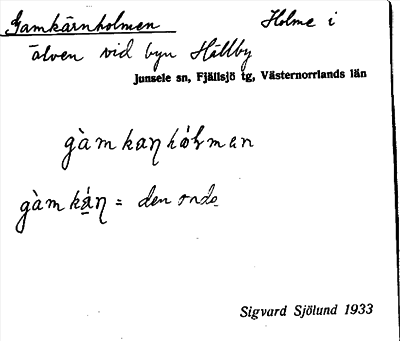 Gamkärnholmen Holme i
älven vid byn Hällby
Junsele sn, Fjällsjö tg, Västernorrlands län
gàmkaŋhólman
gàmkáŋ = den onde
Sigvard Sjölund 1933